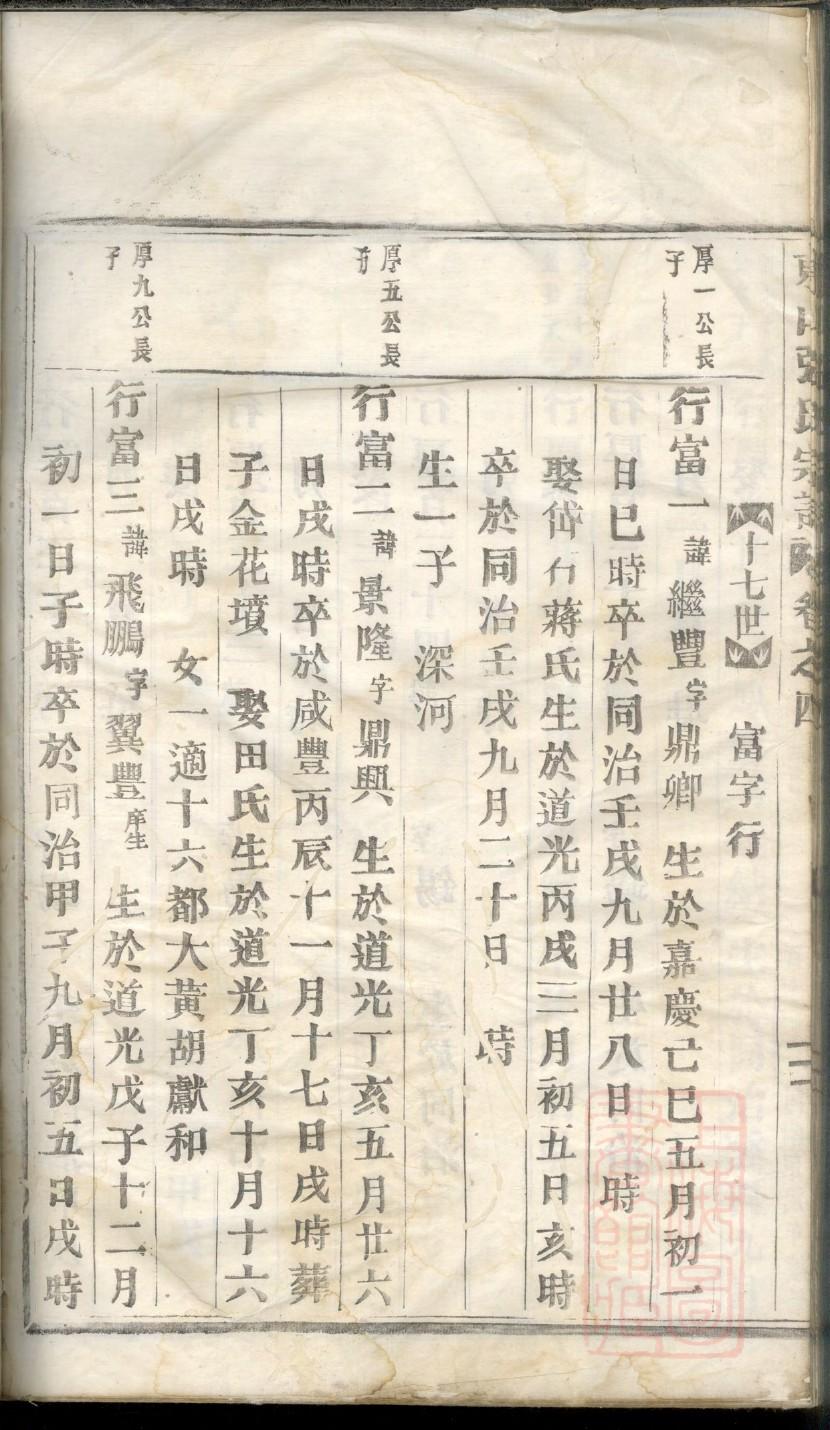 東山張氏宗譜 卷之四
十七世 富字行
厚一公長
子
行富一 諱繼豐字鼎卿 生於嘉慶己巳五月初一
日巳時卒於同治壬戌九月廿八日 時
娶岱石蔣氏生於道光丙戌三月初五日亥時
卒於同治壬戌九月二十日 時
生一子 深河
厚五公長
子
行富二 諱景隆字鼎興 生於道光丁亥五月廿六
日戌時卒於咸豐丙辰十一月十七日戌時葬
子金花墳 娶田氏生於道光丁亥十月十六
日戌時 女一適十六都大黃胡獻和
厚九公長
子
行富三 諱飛鵬字翼豐庠生 生於道光戊子十二月
初一日子時卒於同治甲子九月初五日戌時